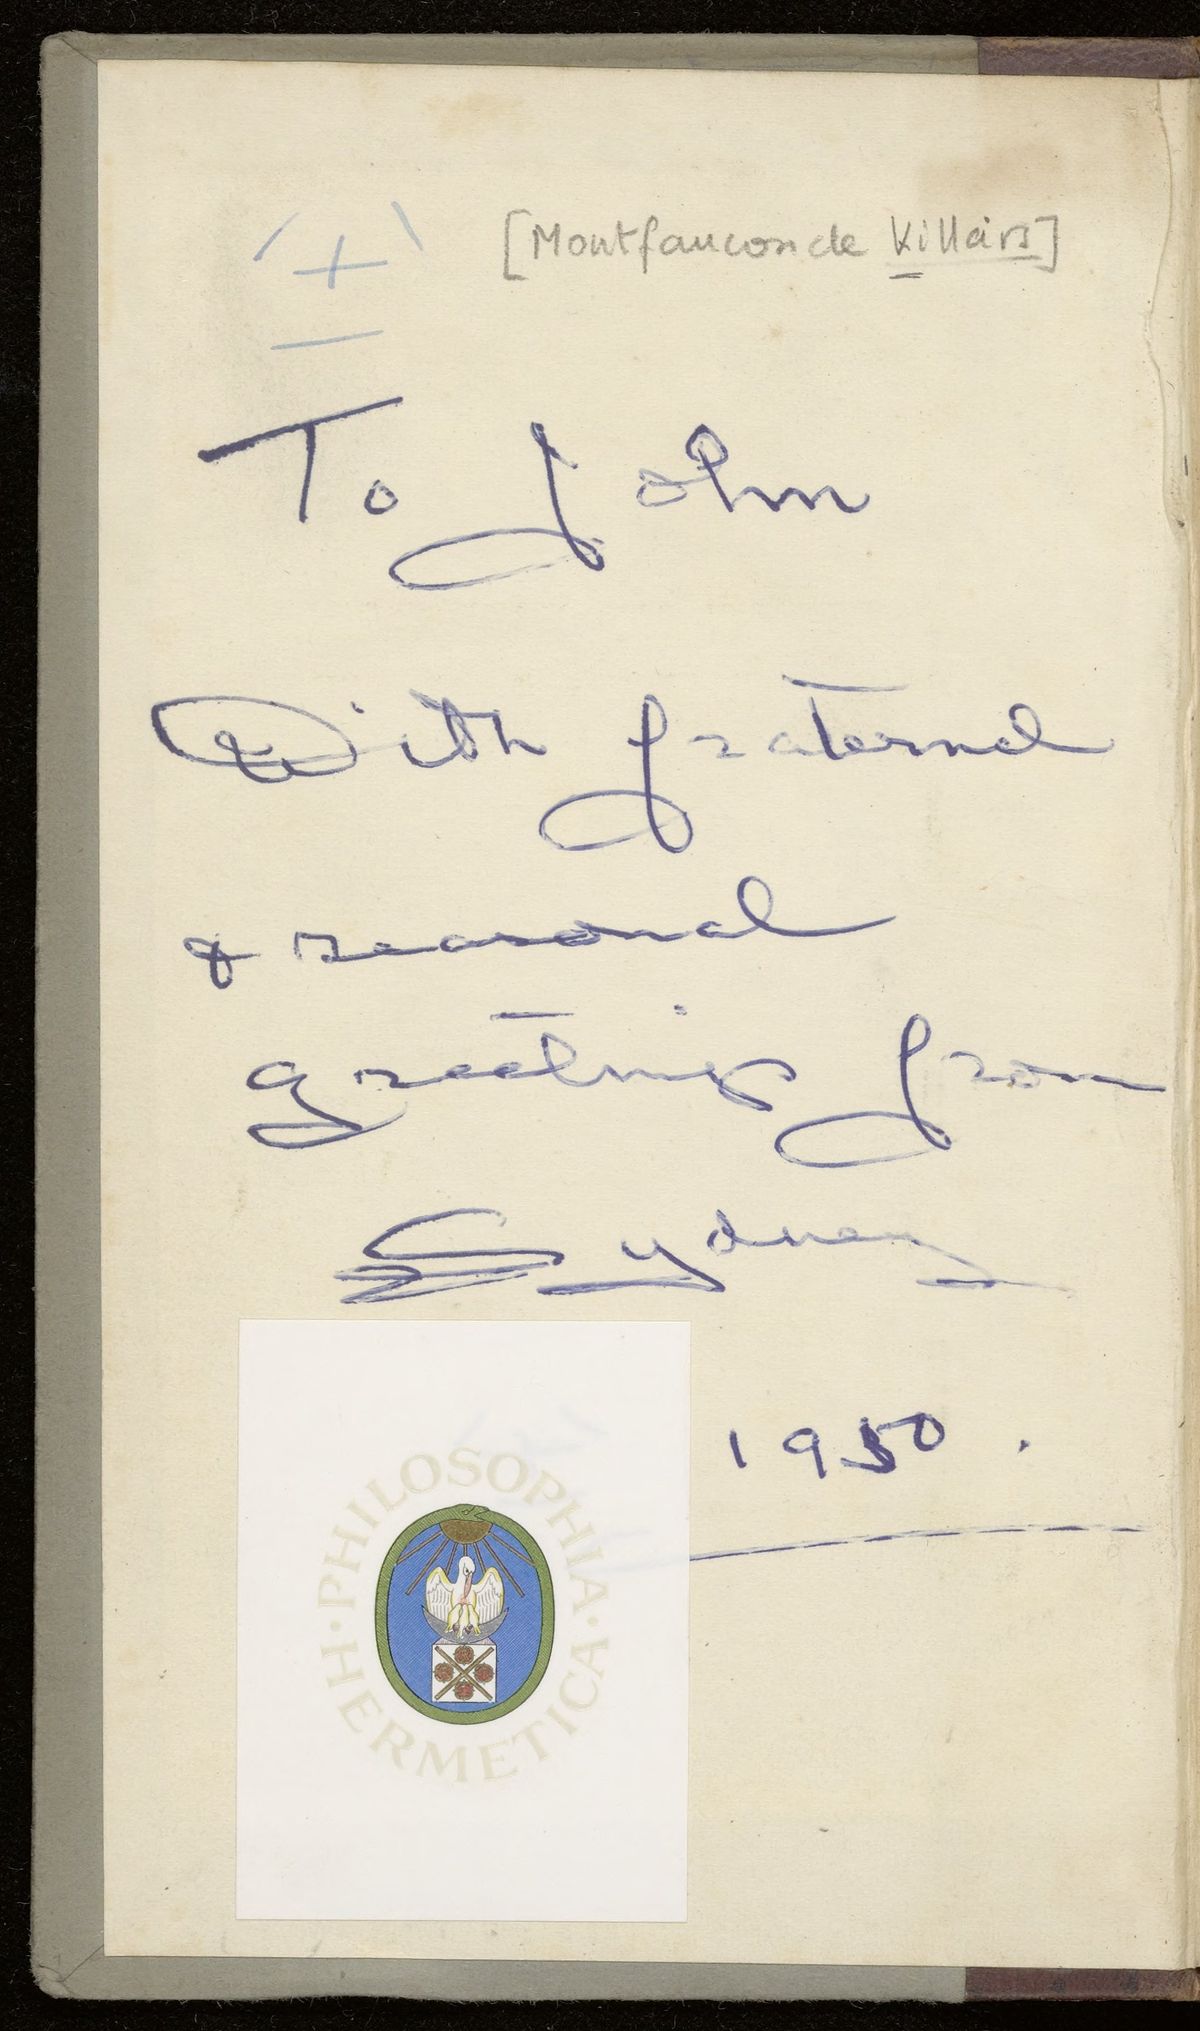 [Montfaucon de Villars]
To John
With fraternal
& seasonal
greetings from
Sydney
1950.
PHILOSOPHIA · HERMETICA ·